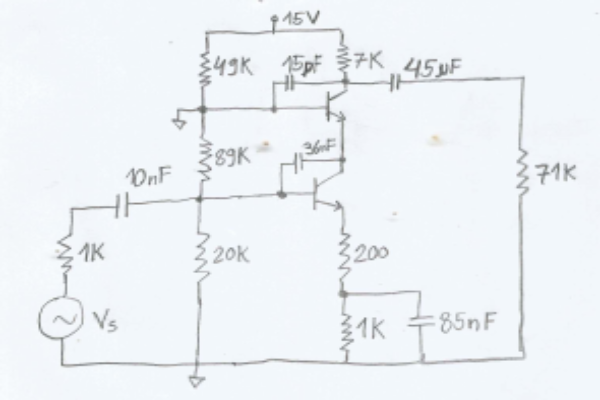 15V
49K
15pF
7K
45µF
89K
36nF
10nF
71K
1K
20K
200
Vs
1K
85nF